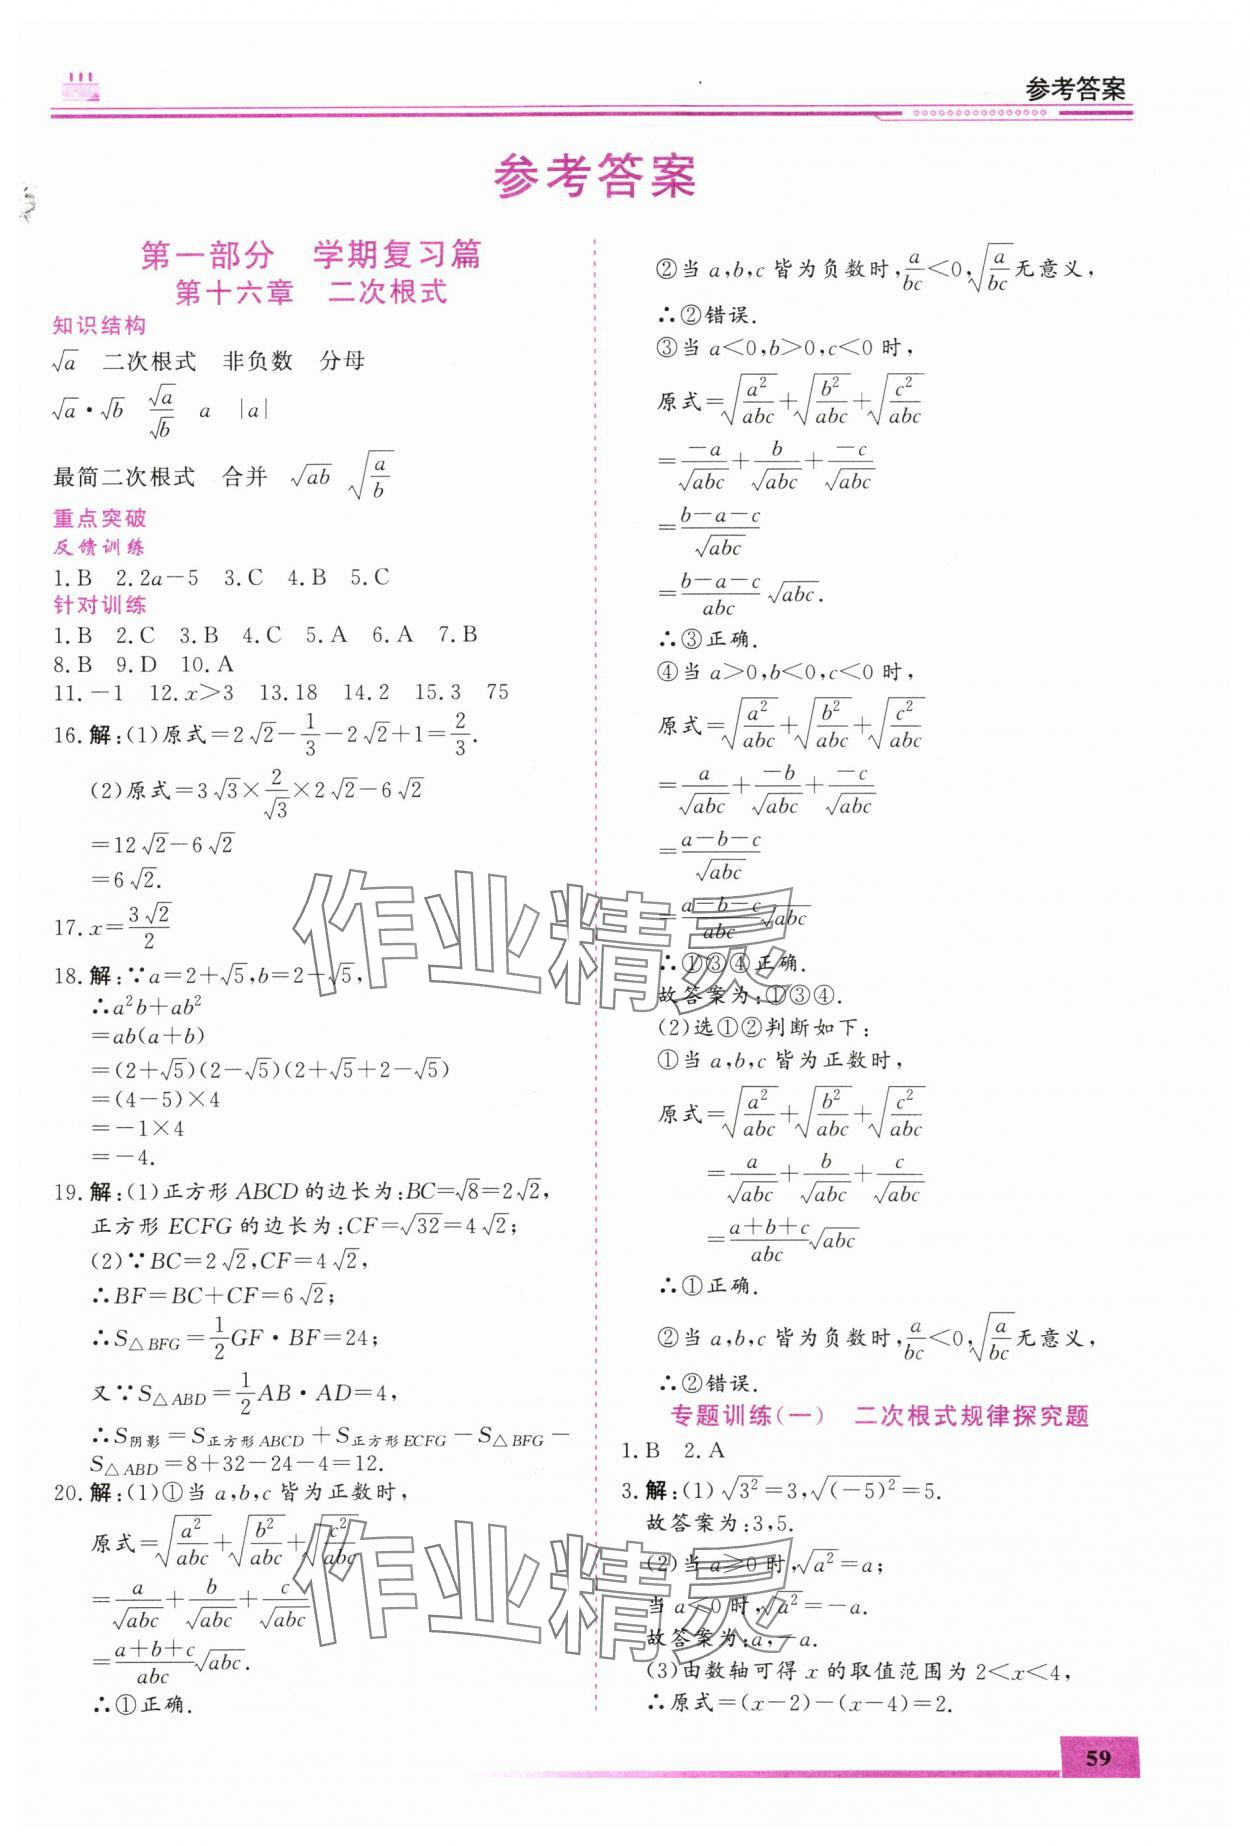 参考答案
参考答案
第一部分　学期复习篇
第十六章　二次根式
知识结构
√a　二次根式　非负数　分母
√a·√b　√a/√b　a　|a|
最简二次根式　合并　√(ab)　√(a/b)
重点突破
反馈训练
1.B　2.2a－5　3.C　4.B　5.C
针对训练
1.B　2.C　3.B　4.C　5.A　6.A　7.B
8.B　9.D　10.A
11.－1　12.x>3　13.18　14.2　15.3　75
16.解:(1)原式＝2√2－1/3－2√2＋1＝2/3.
(2)原式＝3√3×2/√3×2√2－6√2
＝12√2－6√2
＝6√2.
17.x＝3√2/2
18.解:∵a＝2＋√5,b＝2－√5,
∴a²b＋ab²
＝ab(a＋b)
＝(2＋√5)(2－√5)(2＋√5＋2－√5)
＝(4－5)×4
＝－1×4
＝－4.
19.解:(1)正方形ABCD的边长为:BC＝√8＝2√2,
正方形ECFG的边长为:CF＝√32＝4√2;
(2)∵BC＝2√2,CF＝4√2,
∴BF＝BC＋CF＝6√2;
∴S△BFG＝1/2GF·BF＝24;
又∵S△ABD＝1/2AB·AD＝4,
∴S阴影＝S正方形ABCD＋S正方形ECFG－S△BFG－
S△ABD＝8＋32－24－4＝12.
20.解:(1)①当a,b,c皆为正数时,
原式＝√(a²/abc)＋√(b²/abc)＋√(c²/abc)
＝a/√(abc)＋b/√(abc)＋c/√(abc)
＝(a＋b＋c)/abc √(abc).
∴①正确.
②当a,b,c皆为负数时,a/bc<0,√(a/bc)无意义,
∴②错误.
③当a<0,b>0,c<0时,
原式＝√(a²/abc)＋√(b²/abc)＋√(c²/abc)
＝－a/√(abc)＋b/√(abc)＋－c/√(abc)
＝(b－a－c)/√(abc)
＝(b－a－c)/abc √(abc).
∴③正确.
④当a>0,b<0,c<0时,
原式＝√(a²/abc)＋√(b²/abc)＋√(c²/abc)
＝a/√(abc)＋－b/√(abc)＋－c/√(abc)
＝(a－b－c)/√(abc)
＝(a－b－c)/abc √(abc)
∴①③④正确.
故答案为:①③④.
(2)选①②判断如下:
①当a,b,c皆为正数时,
原式＝√(a²/abc)＋√(b²/abc)＋√(c²/abc)
＝a/√(abc)＋b/√(abc)＋c/√(abc)
＝(a＋b＋c)/abc √(abc)
∴①正确.
②当a,b,c皆为负数时,a/bc<0,√(a/bc)无意义,
∴②错误.
专题训练(一)　二次根式规律探究题
1.B　2.A
3.解:(1)√(3²)＝3,√((－5)²)＝5.
故答案为:3,5.
(2)当a≥0时,√(a²)＝a;
当a<0时,√(a²)＝－a.
故答案为:a,－a.
(3)由数轴可得x的取值范围为2<x<4,
∴原式＝(x－2)－(x－4)＝2.
作业精灵
作业精灵
59